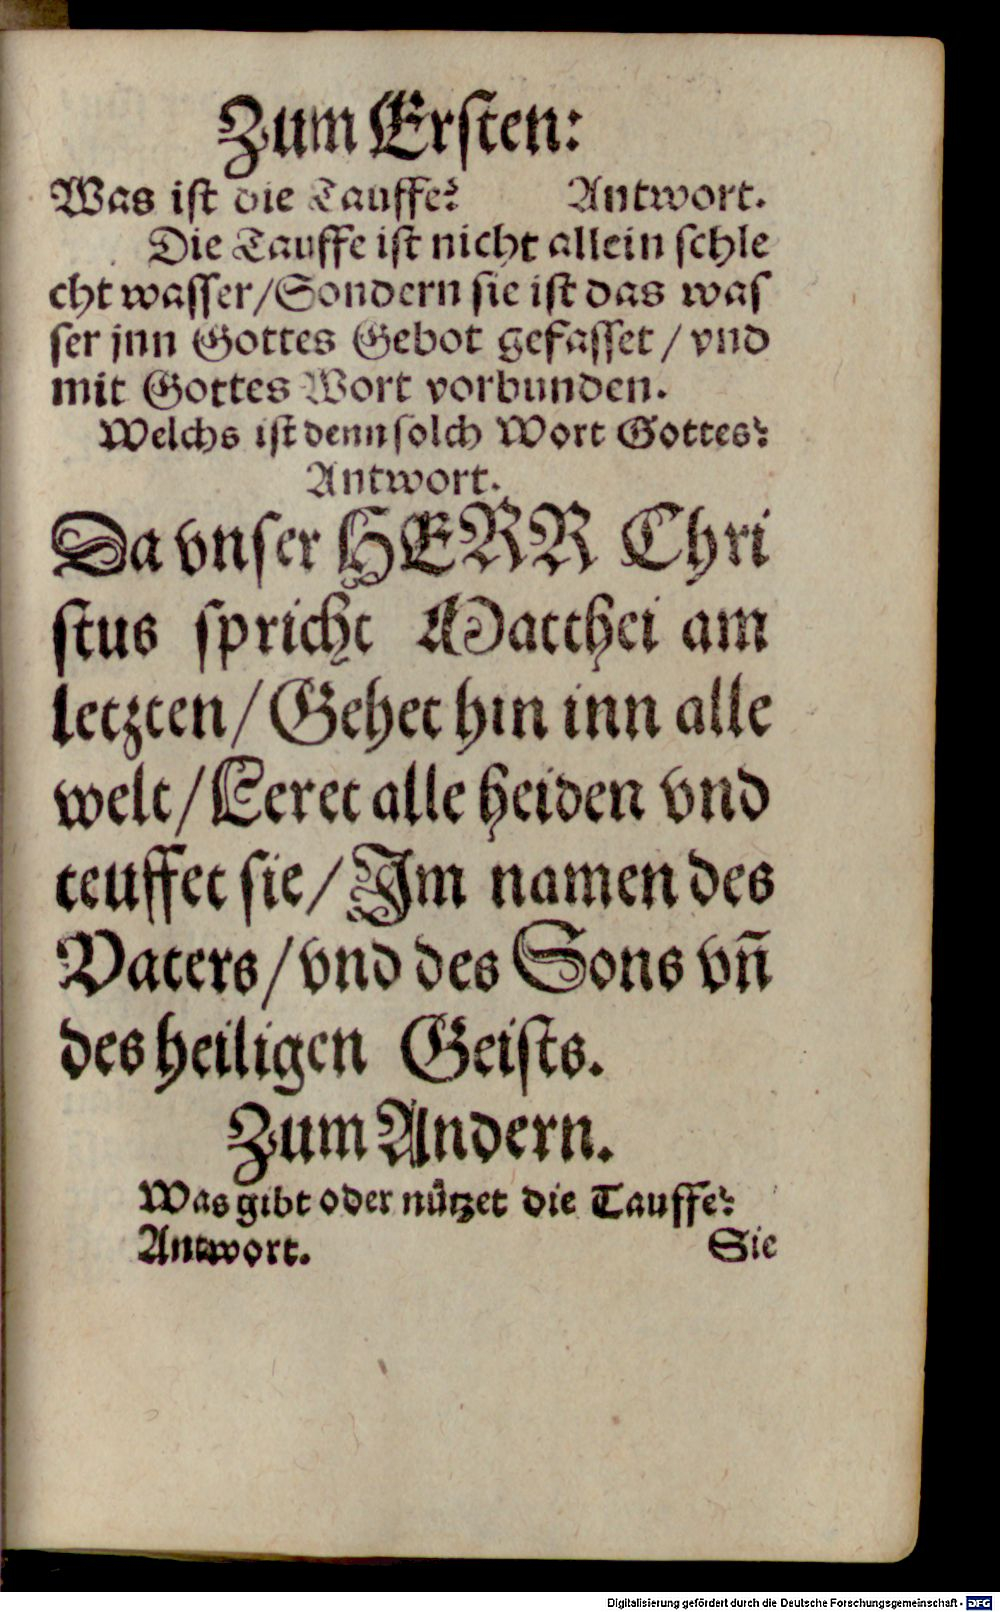 Zum Erſten:
Was iſt die Tauffe? Antwort.
Die Tauffe iſt nicht allein ſchle
cht waſſer/Sondern ſie iſt das waſ
ſer jnn Gottes Gebot gefaſſet / vnd
mit Gottes Wort vorbunden.
Welchs iſt denn ſolch Wort Gottes?
Antwort.
Da vnſer HERR Chri
ſtus ſpricht Matthei am
letzten/Gehet hin inn alle
welt/Leret alle heiden vnd
teuffet ſie/Im namen des
Vaters/vnd des Sons vñ
des heiligen Geiſts.
Zum Andern.
Was gibt oder nützet die Tauffe?
Antwort. Sie
Digitalisierung gefördert durch die Deutsche Forschungsgemeinschaft - DFG